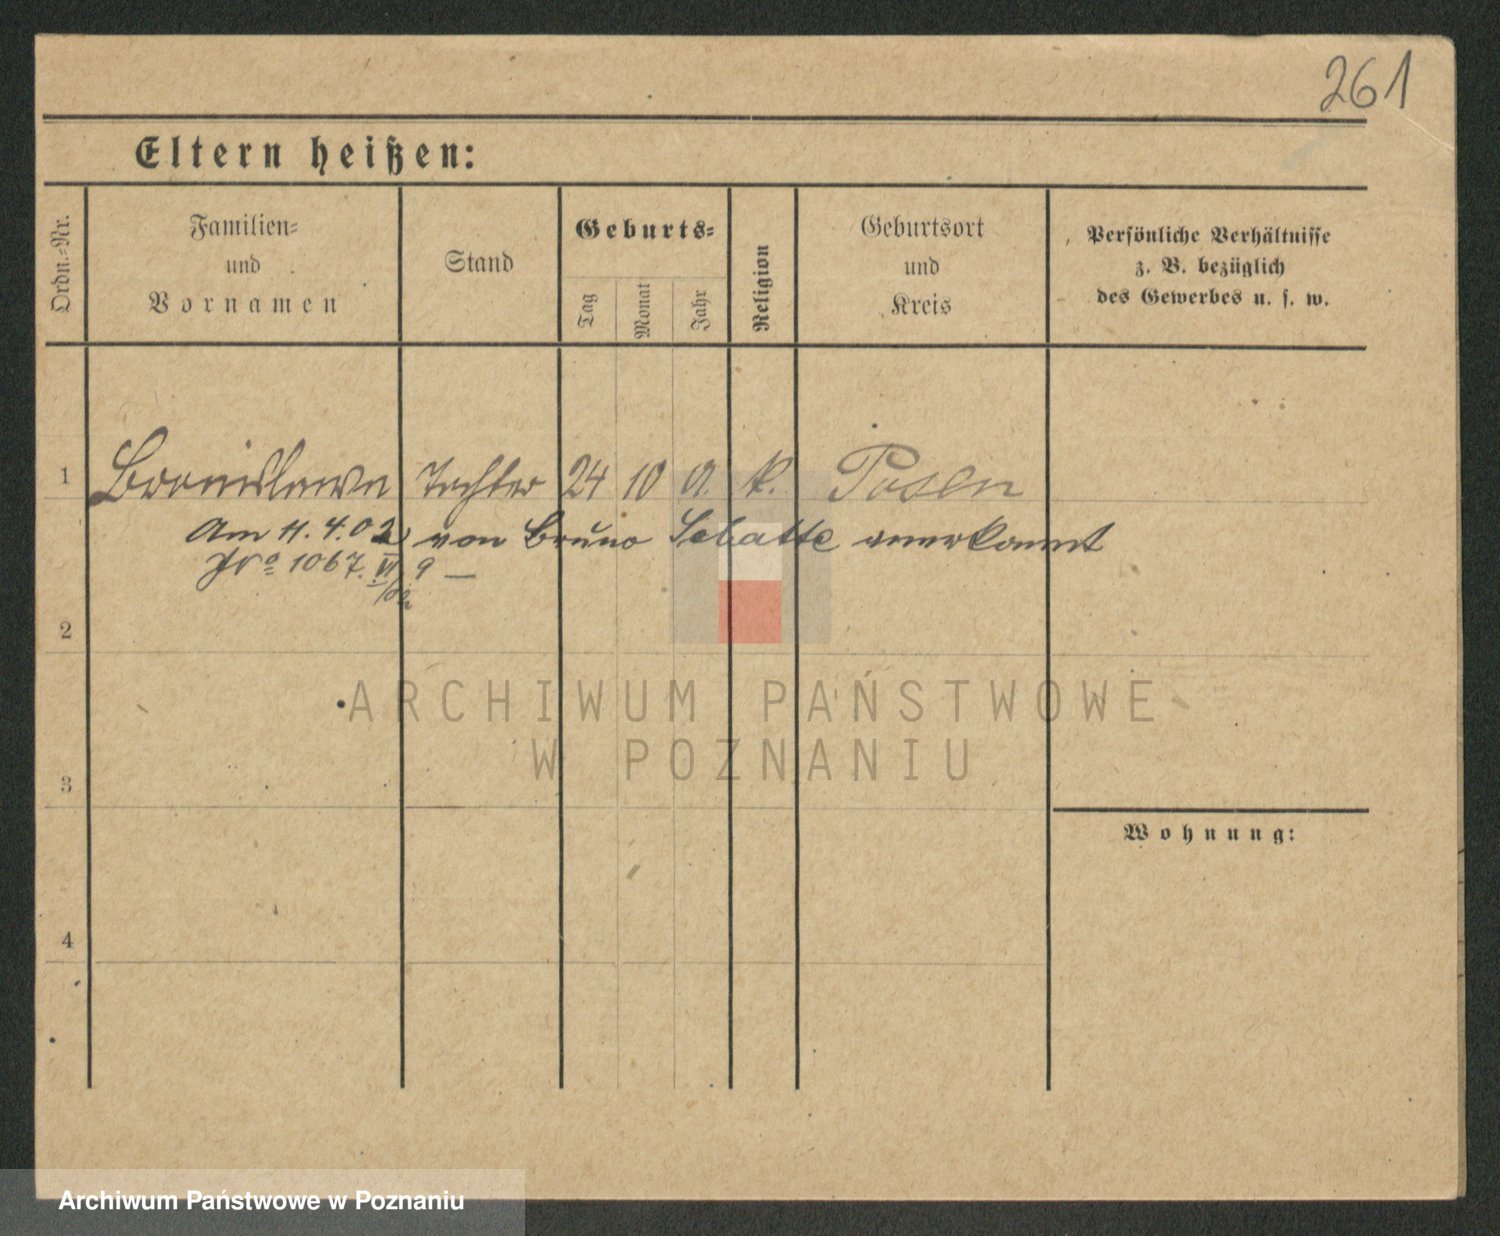 261
Eltern heißen:
Ordn.-Nr.
Familien-
und
Vornamen
Stand
Geburts-
Tag
Monat
Jahr
Religion
Geburtsort
und
Kreis
Persönliche Verhältnisse
z. B. bezüglich
des Gewerbes u. s. w.
1 Bronislawa Tochter 24 10 k. Posen
Am 11.4.02 von Bruno anerkannt
1067. VI 9 —
2
3
4
Wohnung:
ARCHIWUM PAŃSTWOWE
W POZNANIU
Archiwum Państwowe w Poznaniu